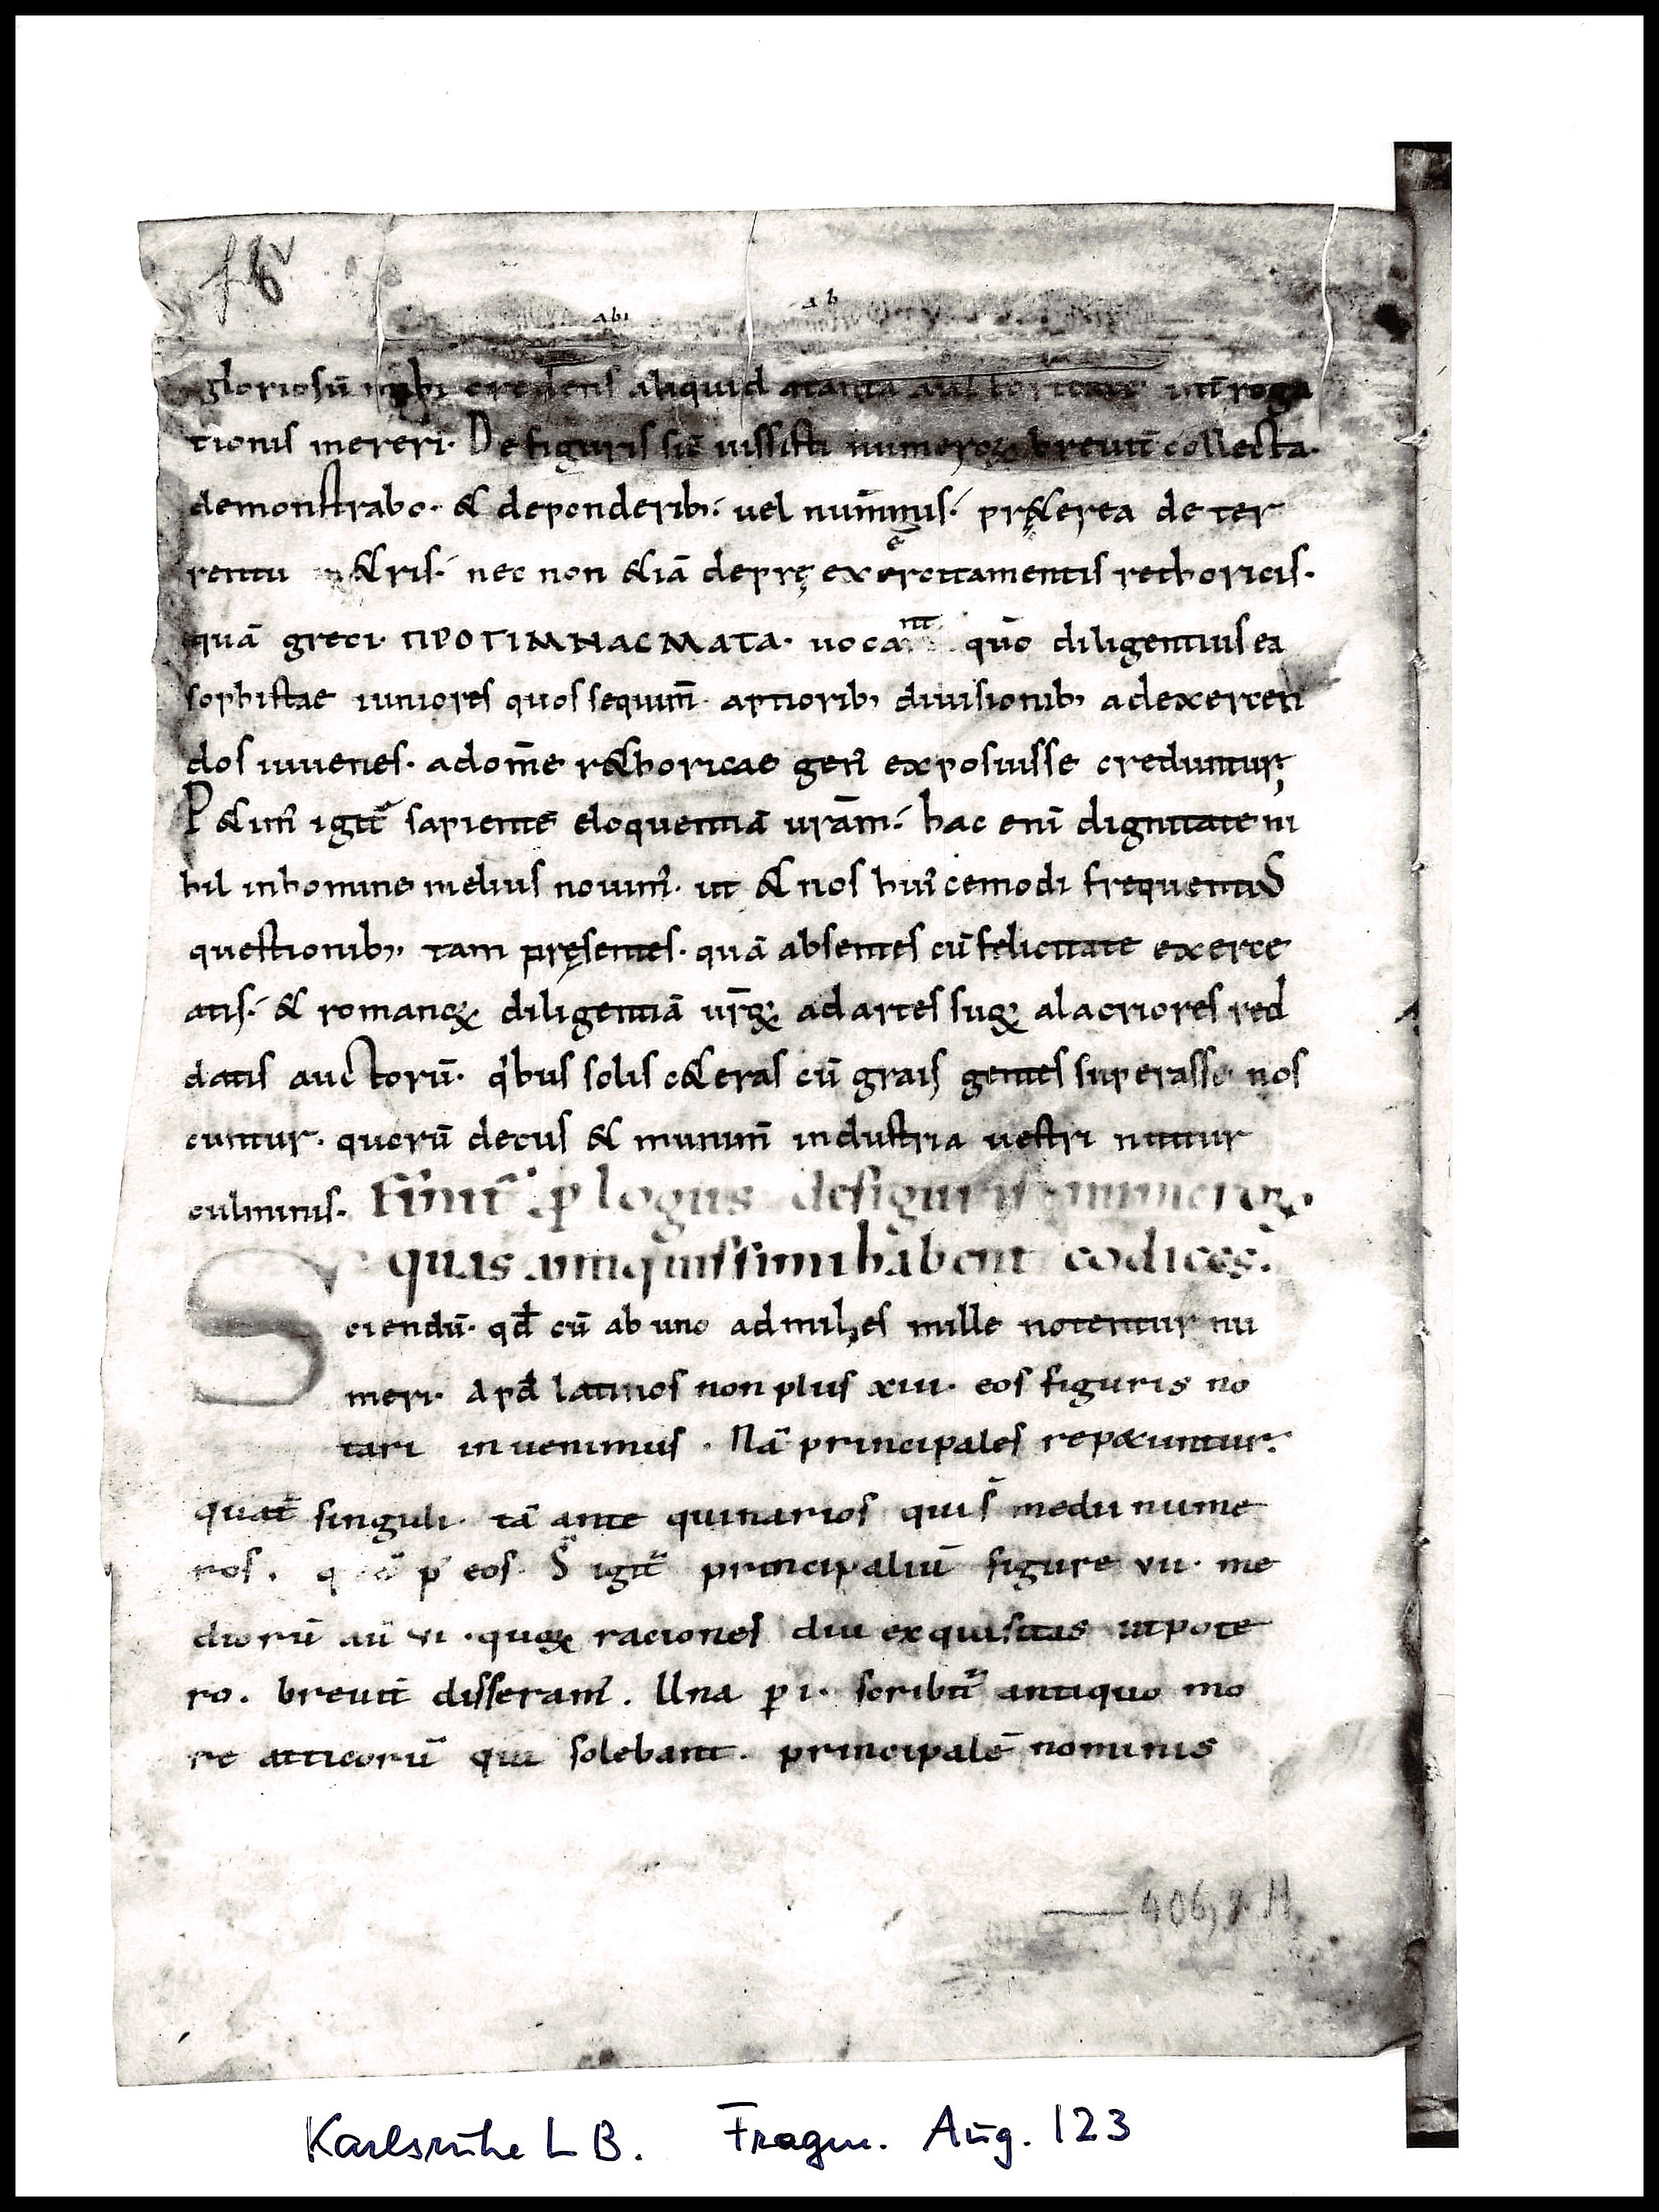 f 6v
abi ab
gloriosū mihi credens aliquid atanta auctoritate int̄roga
tionis mereri. De figuris sic̄ iussisti numeroꝝ breuit̄ collecta.
demonstrabo. & deponderib; uel nummis. pr&erea de ter
rentii m&ris. nec non &iā deprę exercitamentis rethoricis.
quā greci. ΠΡΟΓΙΜΝΑCΜΑΤΑ. uocant quō diligentius ea
sophistae iuniores quos sequim̄ aptiorib; diuisionib; adexercen
dos iuuenes. adom̄e r&horicae gen̄ exposuisse creduntur
P&im̄ igit̄ sapientē eloquentiā urām. hac enī dignitate ni
hil inhomine melius nouim̄. ut & nos hui᾽cemodi frequentiS
questionib; tam pręsentes. quā absentes cū felicitate exerce
atis. & romanoꝝ diligentiā ur̄oꝝ adartes suoꝝ alacriores red
datis auctorū. q'bus solis c&eras cū grais gentes superasse nos
cuntur. quorū decus & munim̄ industria uestri nititur
culminis. Finit̄ p̄logus defiguris numeroꝝ.
quas antiquissimi habent codices.
Sciendū. qđ cū ab uno admil;es mille notentur nu
meri. Apđ latinos non plus xiii. eos figuris no
tari inuenimus. Nā principales repetuntur.
quat̄ singuli. tā ante quinarios quiś medii nume
ros. p᾽ eos. S igit̄ principaliū figure vii. me
diorū aū vi. quoꝝ raciones diu exquisitas utpote
ro. breuit̄ disseram᾽. Una p i. scribit̄ antiquo mo
re atticorū qui solebant. principalē nominis
406, 8 H
Karlsruhe LB. Fragm. Aug. 123